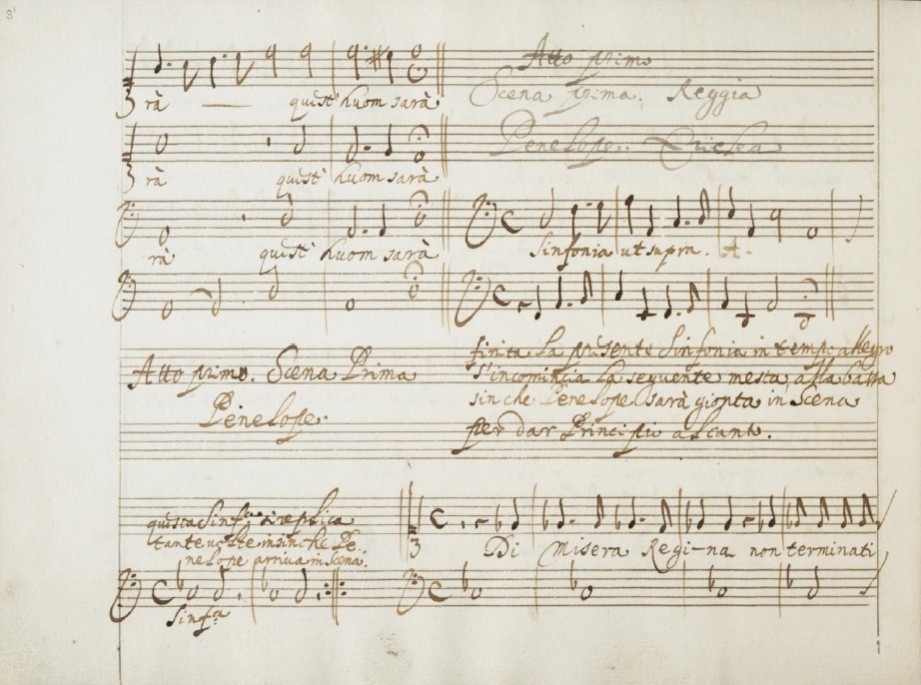 8'
Atto primo
Scena prima. Reggia
rà quest' huom sarà
Penelope. Ericlea
rà quest' huom sarà
rà quest' huom sarà
Sinfonia ut supra. A.
finita la presente Sinfonia in temp: allegro
s'incomincia la seguente mesta, alla bassa
sin che Penelope sarà gionta in Scena
per dar Principio al canto.
Atto primo. Scena Prima
Penelope.
questa Sinf.a si replica
tante volte insin che Pe-
nelope arriva in scena.
Di misera Regi-na non terminati
Sinf.a